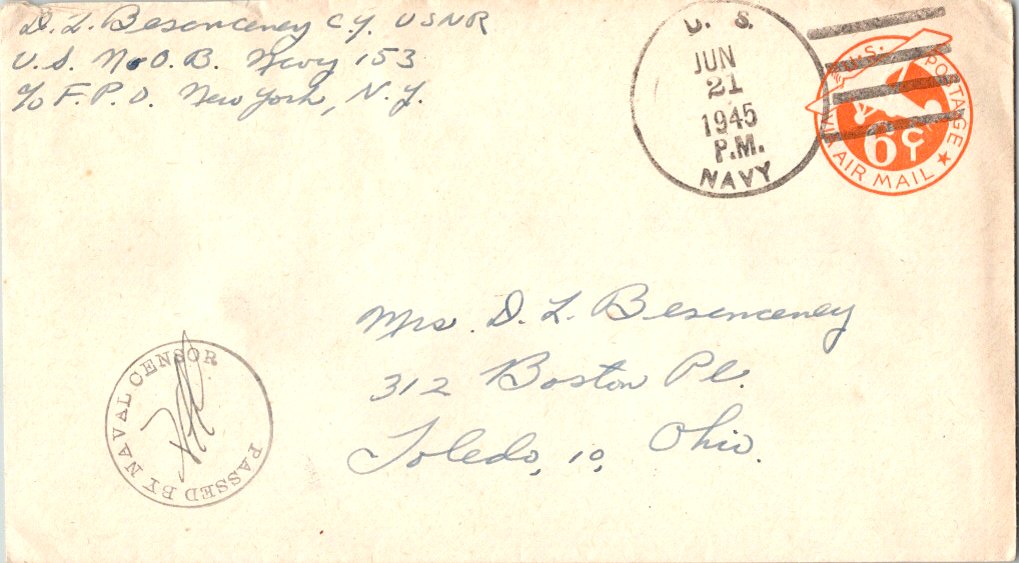 D. L. Besenceney C.Y. USNR
U.S. N.O.B. Navy 153
c/o F.P.O. New York, N.Y.
U. S.
JUN
21
1945
P.M.
NAVY
U.S. POSTAGE
6¢
VIA AIR MAIL
Mrs. D. L. Besenceney
312 Boston Pl.
Toledo, 10, Ohio.
PASSED BY NAVAL CENSOR